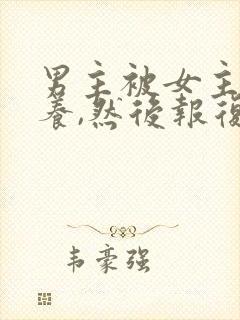 男主被女主
養,然後報復
韦豪强